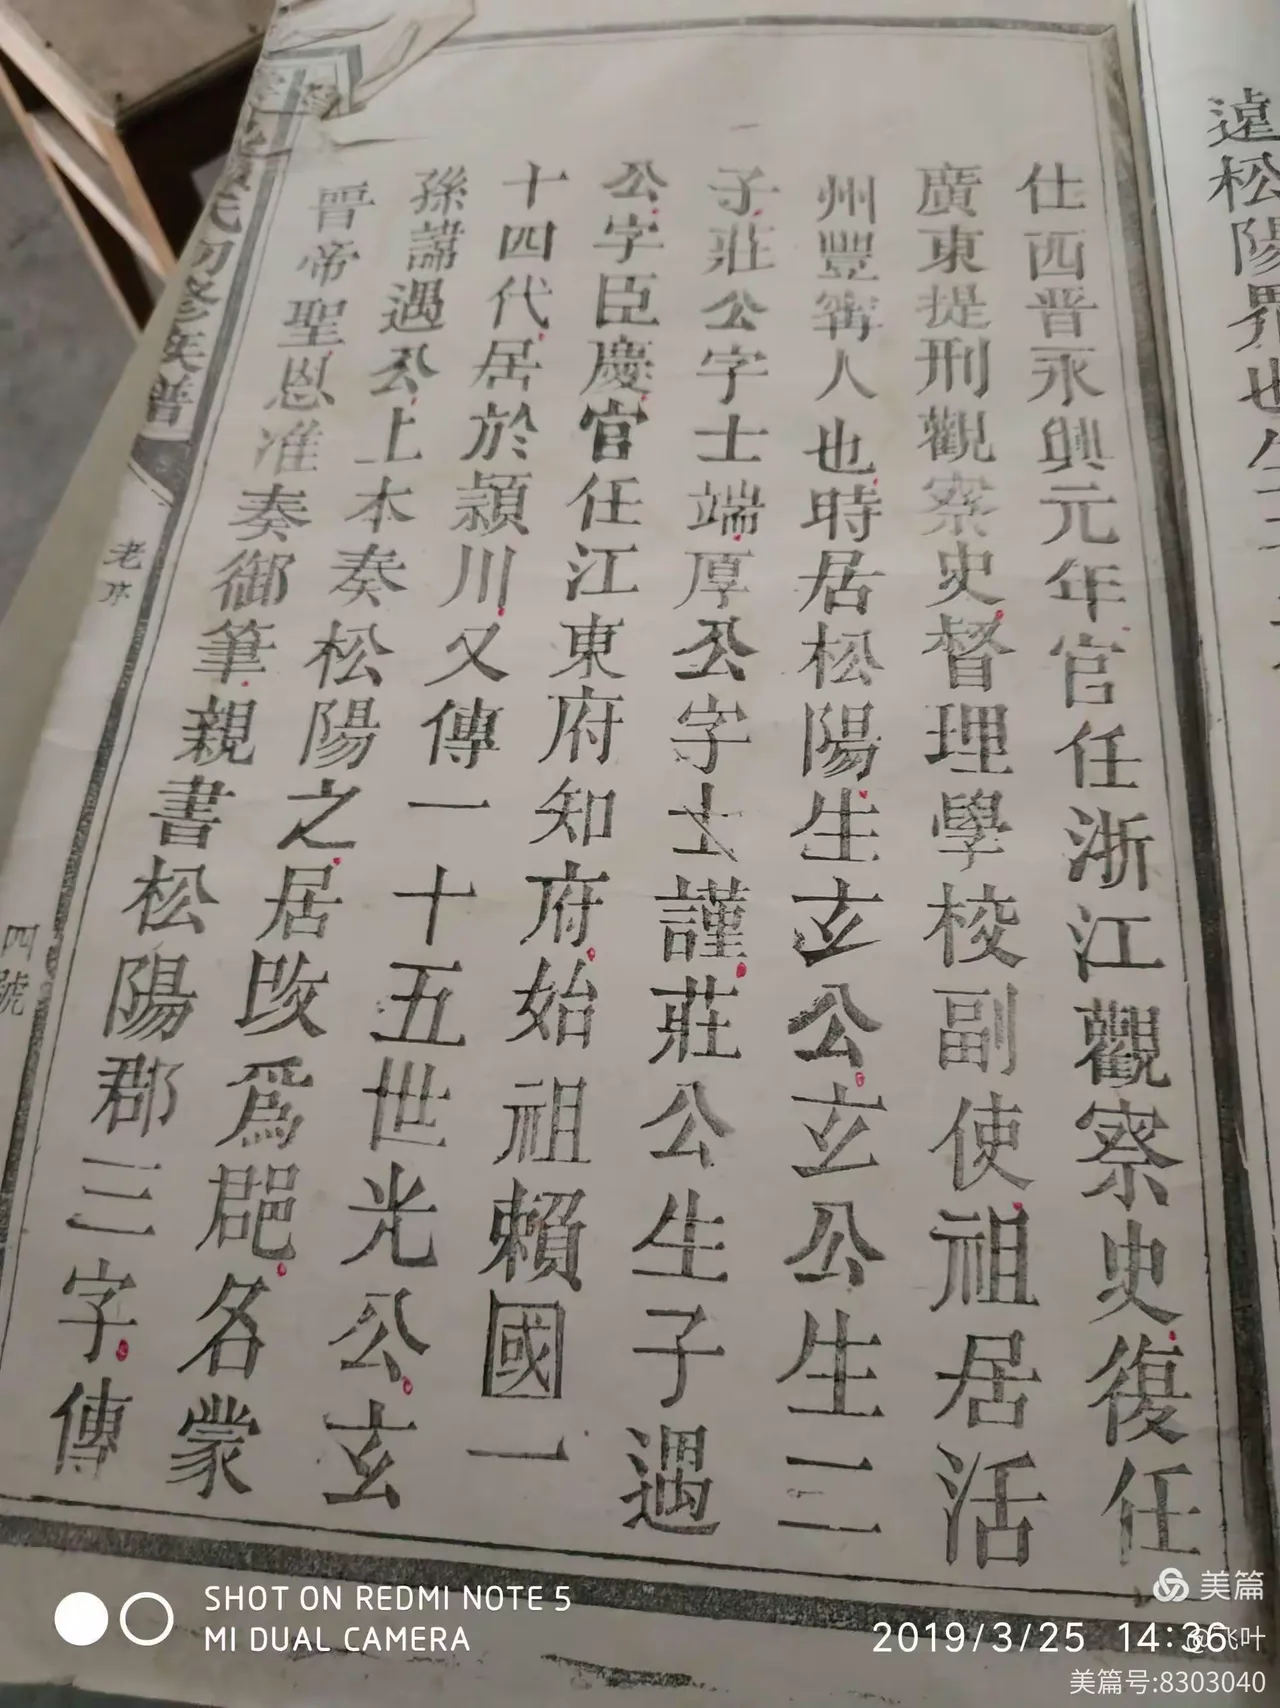 遠松陽界也生
仕西晋永興元年官任浙江觀察史復任
廣東提刑觀察史督理學校副使祖居活
州豐寗人也時居松陽生玄公玄公生二
子莊公字士端厚公字士謹莊公生子遇
公字臣慶官任江東府知府始祖賴國一
十四代居於潁川又傳一十五世光公玄
孫諱遇公上本奏松陽之居改爲郡名蒙
晋帝聖恩准奏御筆親書松陽郡三字傳
氏初修族譜
老序
四號
SHOT ON REDMI NOTE 5
MI DUAL CAMERA
美篇
2019/3/25 14:36
@飞叶
美篇号:8303040